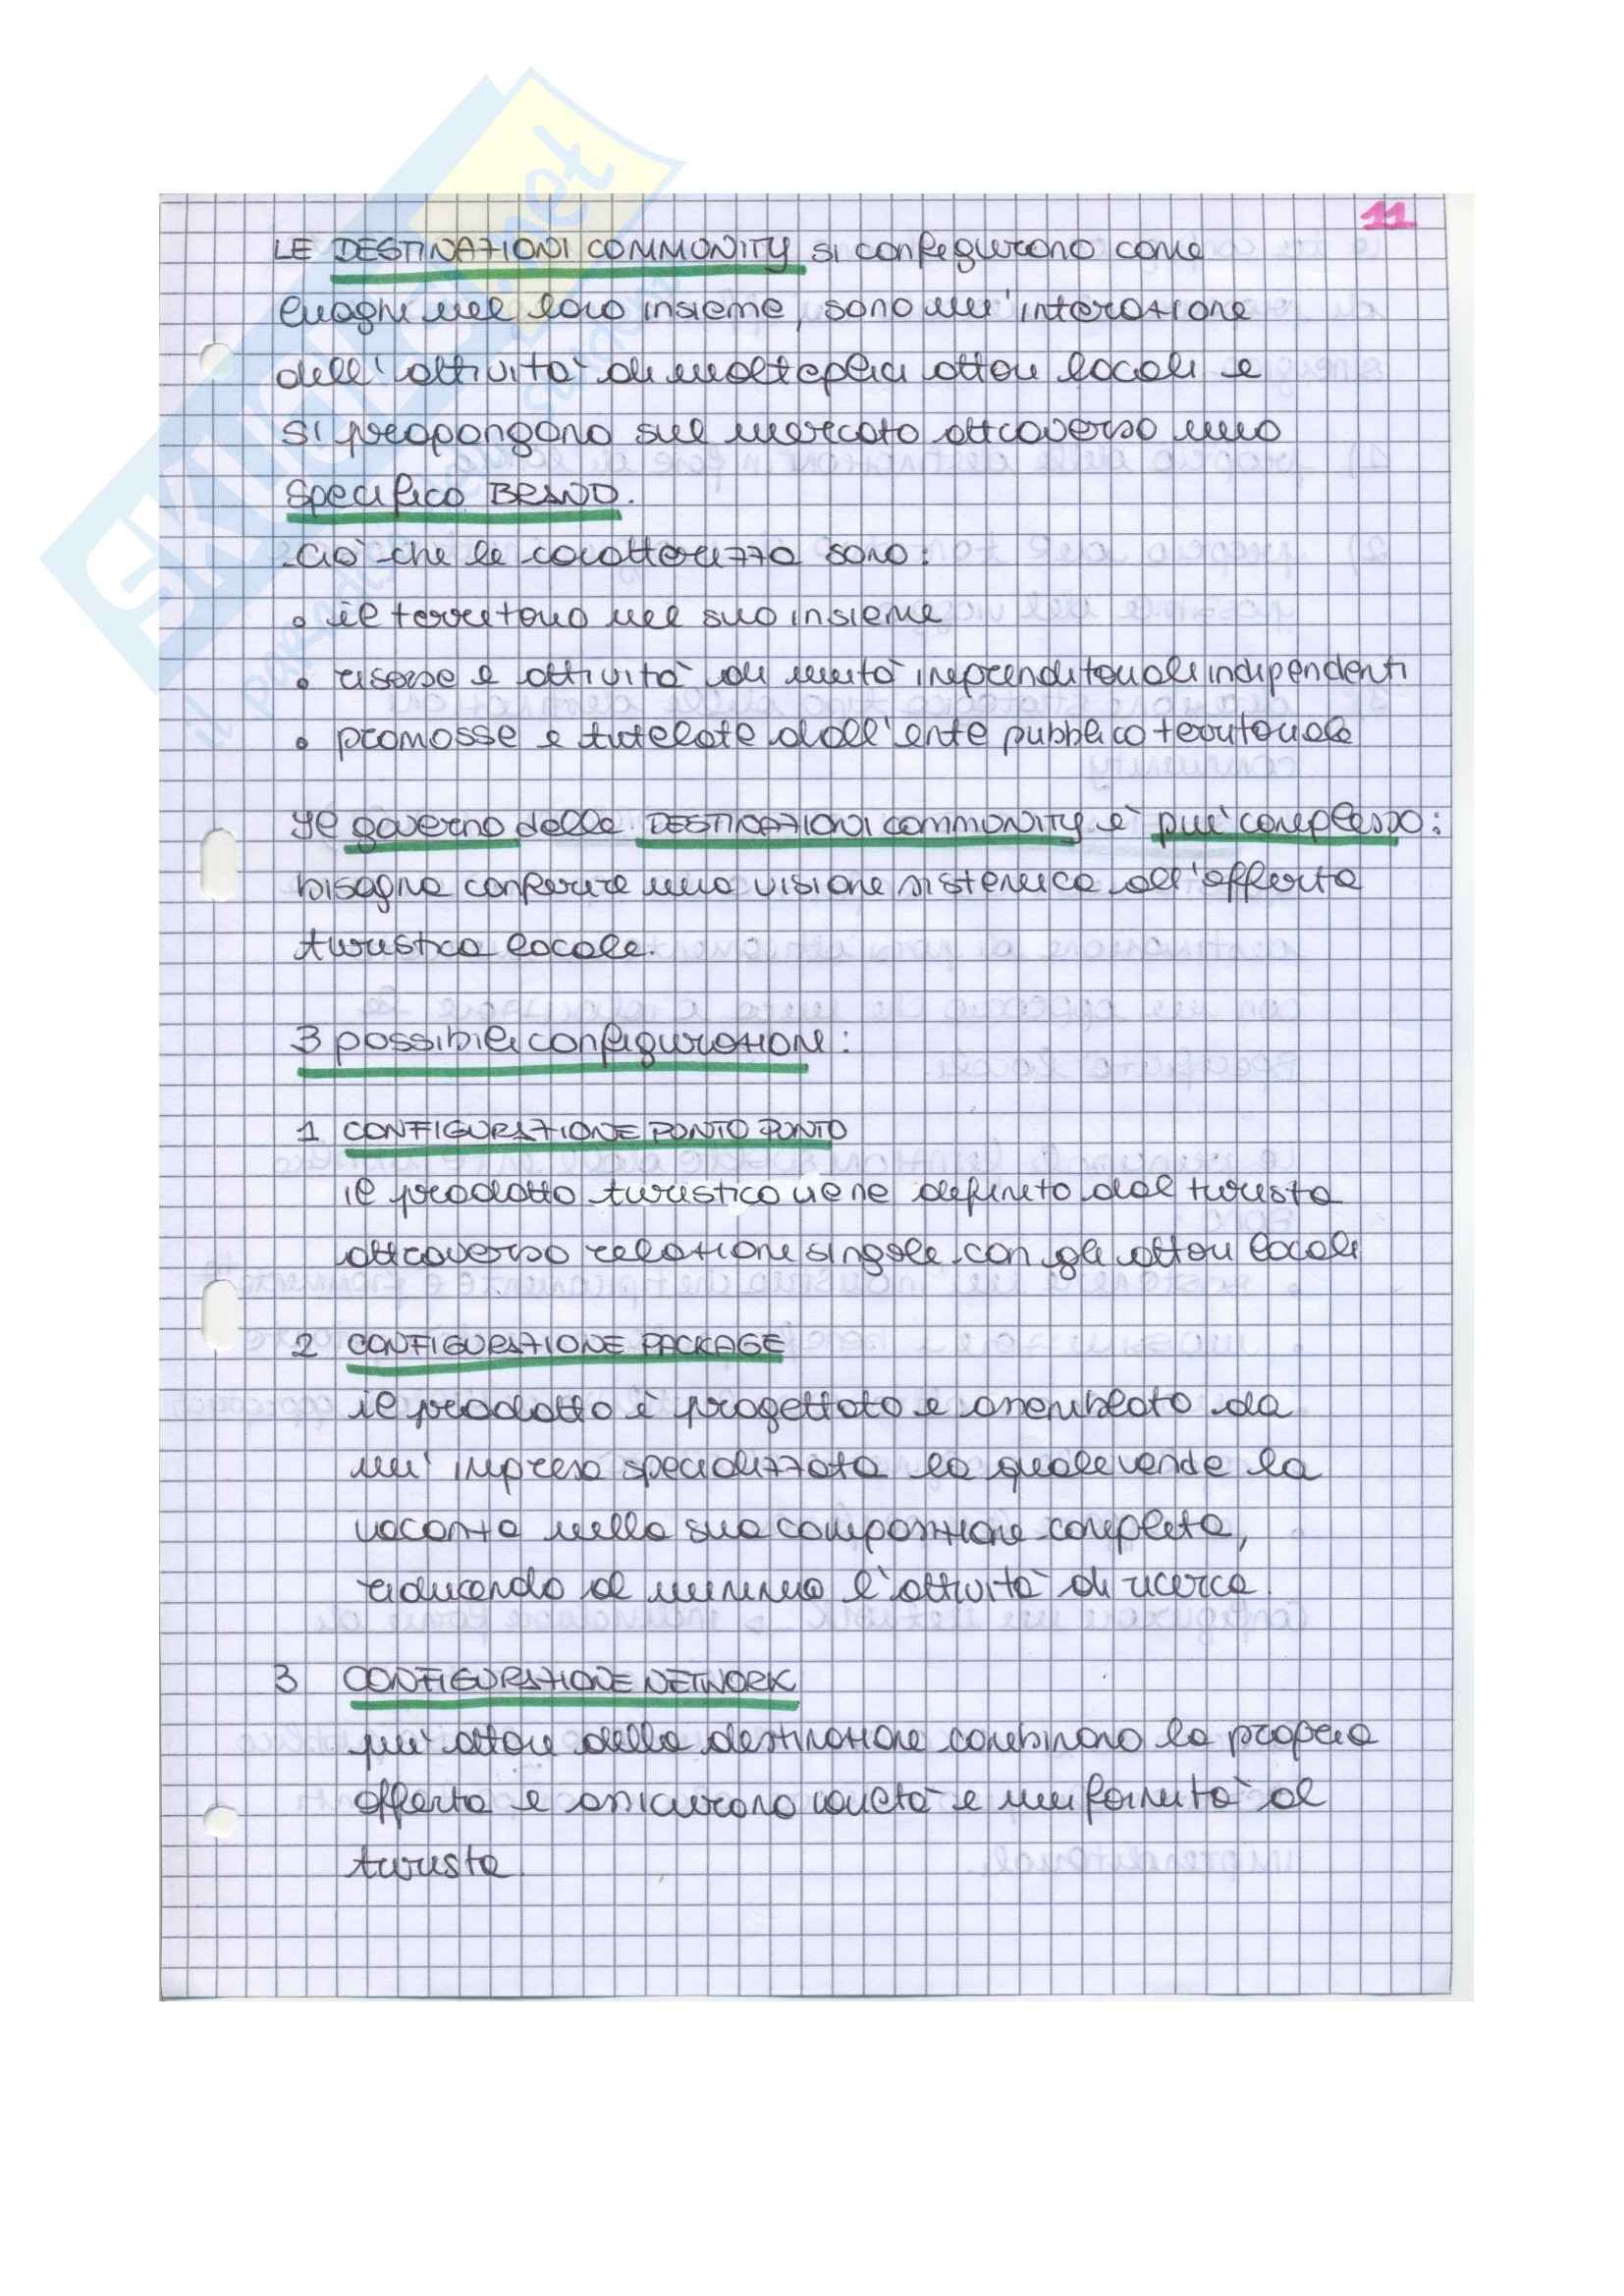 11
LE DESTINAZIONI COMMUNITY si configurano come
luoghi nel loro insieme, sono un'interazione
dell'attività di molteplici attori locali e
si propongono sul mercato attraverso uno
specifico BRAND.
Ciò che le caratterizza sono:
• il territorio nel suo insieme
• risorse e attività di unità imprenditoriali indipendenti
• promosse e tutelate dall'ente pubblico territoriale
Il governo delle DESTINAZIONI COMMUNITY è più complesso:
bisogna conferire una visione sistemica all'offerta
turistica locale.
3 possibili configurazioni:
1 CONFIGURAZIONE PUNTO PUNTO
il prodotto turistico viene definito dal turista
attraverso relazioni singole con gli attori locali
2 CONFIGURAZIONE PACKAGE
il prodotto è progettato e assemblato da
un'impresa specializzata la quale vende la
vacanza nella sua composizione completa,
riducendo al minimo l'attività di ricerca
3 CONFIGURAZIONE NETWORK
più attori della destinazione combinano la propria
offerta e assicurano varietà e uniformità al
turista
SKUOLA.net